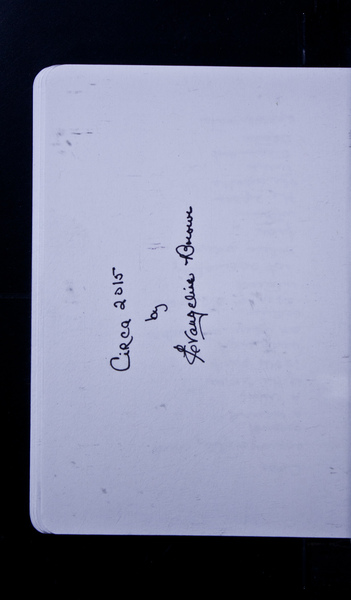 Circa 2015
by
Evangeline Brown